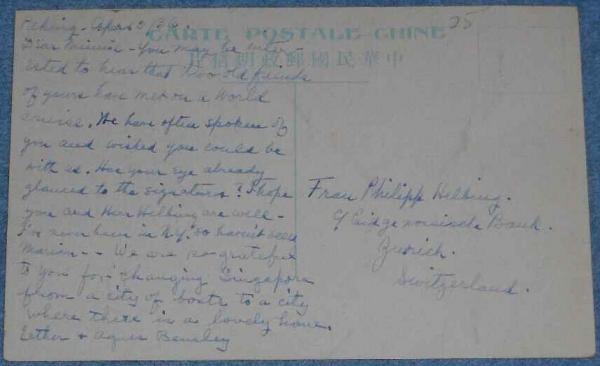 Peking - April 3/26.
CARTE POSTALE CHINE
25
中華民國郵政明信片
Dear Minnie - You may be inter-
ested to hear that two old friends
of yours have met on a world
cruise. We have often spoken of
you and wished you could be
with us. Has your eye already
glanced to the signatures? I hope
you and Herr Helbing are well -
I've never been in N.Y. so haven't seen
Marion - - We are so grateful
to you for changing Singapore
from a city of boats to a city
where there is a lovely home.
Esther & Agnes Bensley
Frau Philipp Helbing.
c/o Eidgenössische Bank.
Zurich.
Switzerland.